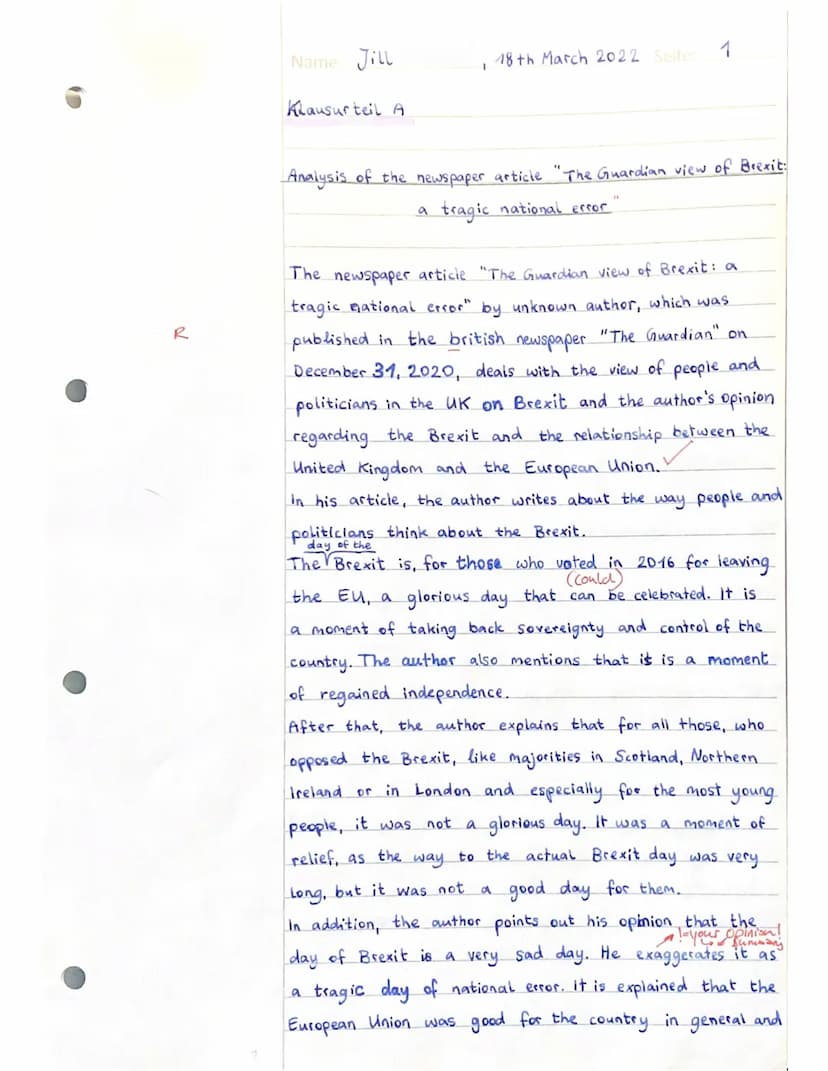 Name Jill , 18th March 2022 Seite 1
Klausurteil A
Analysis of the newspaper article "The Guardian view of Brexit:
a tragic national error"
The newspaper article "The Guardian view of Brexit: a
tragic national error" by unknown author, which was
R
published in the british newspaper "The Guardian" on
December 31, 2020, deals with the view of people and
politicians in the UK on Brexit and the author's opinion
regarding the Brexit and the relationship between the
United Kingdom and the European Union.
In his article, the author writes about the way people and
politicians think about the Brexit.
day of the
The Brexit is, for those who voted in 2016 for leaving
(could)
the EU, a glorious day that can be celebrated. It is
a moment of taking back sovereignty and control of the
country. The author also mentions that it is a moment
of regained independence.
After that, the author explains that for all those, who
opposed the Brexit, like majorities in Scotland, Northern
Ireland or in London and especially for the most young
people, it was not a glorious day. It was a moment of
relief, as the way to the actual Brexit day was very
long, but it was not a good day for them.
In addition, the author points out his opinion that the
!=your opinion!
summary
day of Brexit is a very sad day. He exaggerates it as
a tragic day of national error. It is explained that the
European Union was good for the country in general and